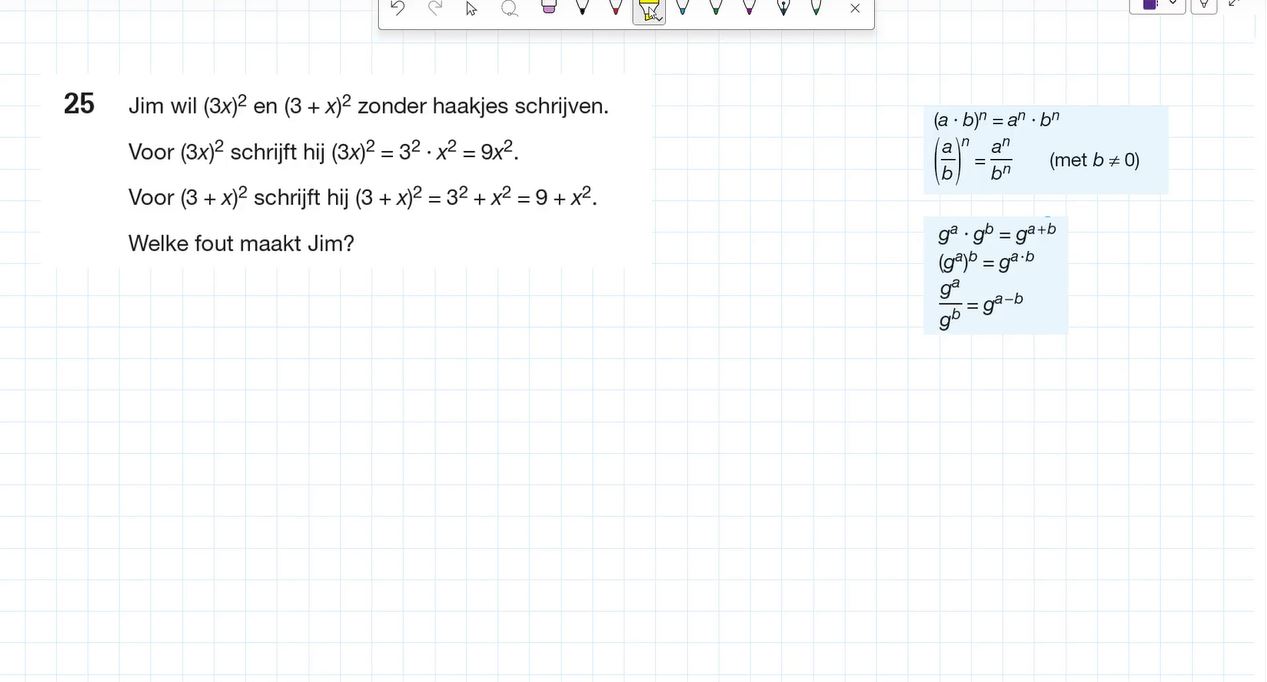 25 Jim wil (3x)² en (3 + x)² zonder haakjes schrijven.
Voor (3x)² schrijft hij (3x)² = 3² · x² = 9x².
Voor (3 + x)² schrijft hij (3 + x)² = 3² + x² = 9 + x².
Welke fout maakt Jim?
(a · b)ⁿ = aⁿ · bⁿ
(a/b)ⁿ = aⁿ/bⁿ (met b ≠ 0)
gᵃ · gᵇ = gᵃ⁺ᵇ
(gᵃ)ᵇ = gᵃ·ᵇ
gᵃ/gᵇ = gᵃ⁻ᵇ